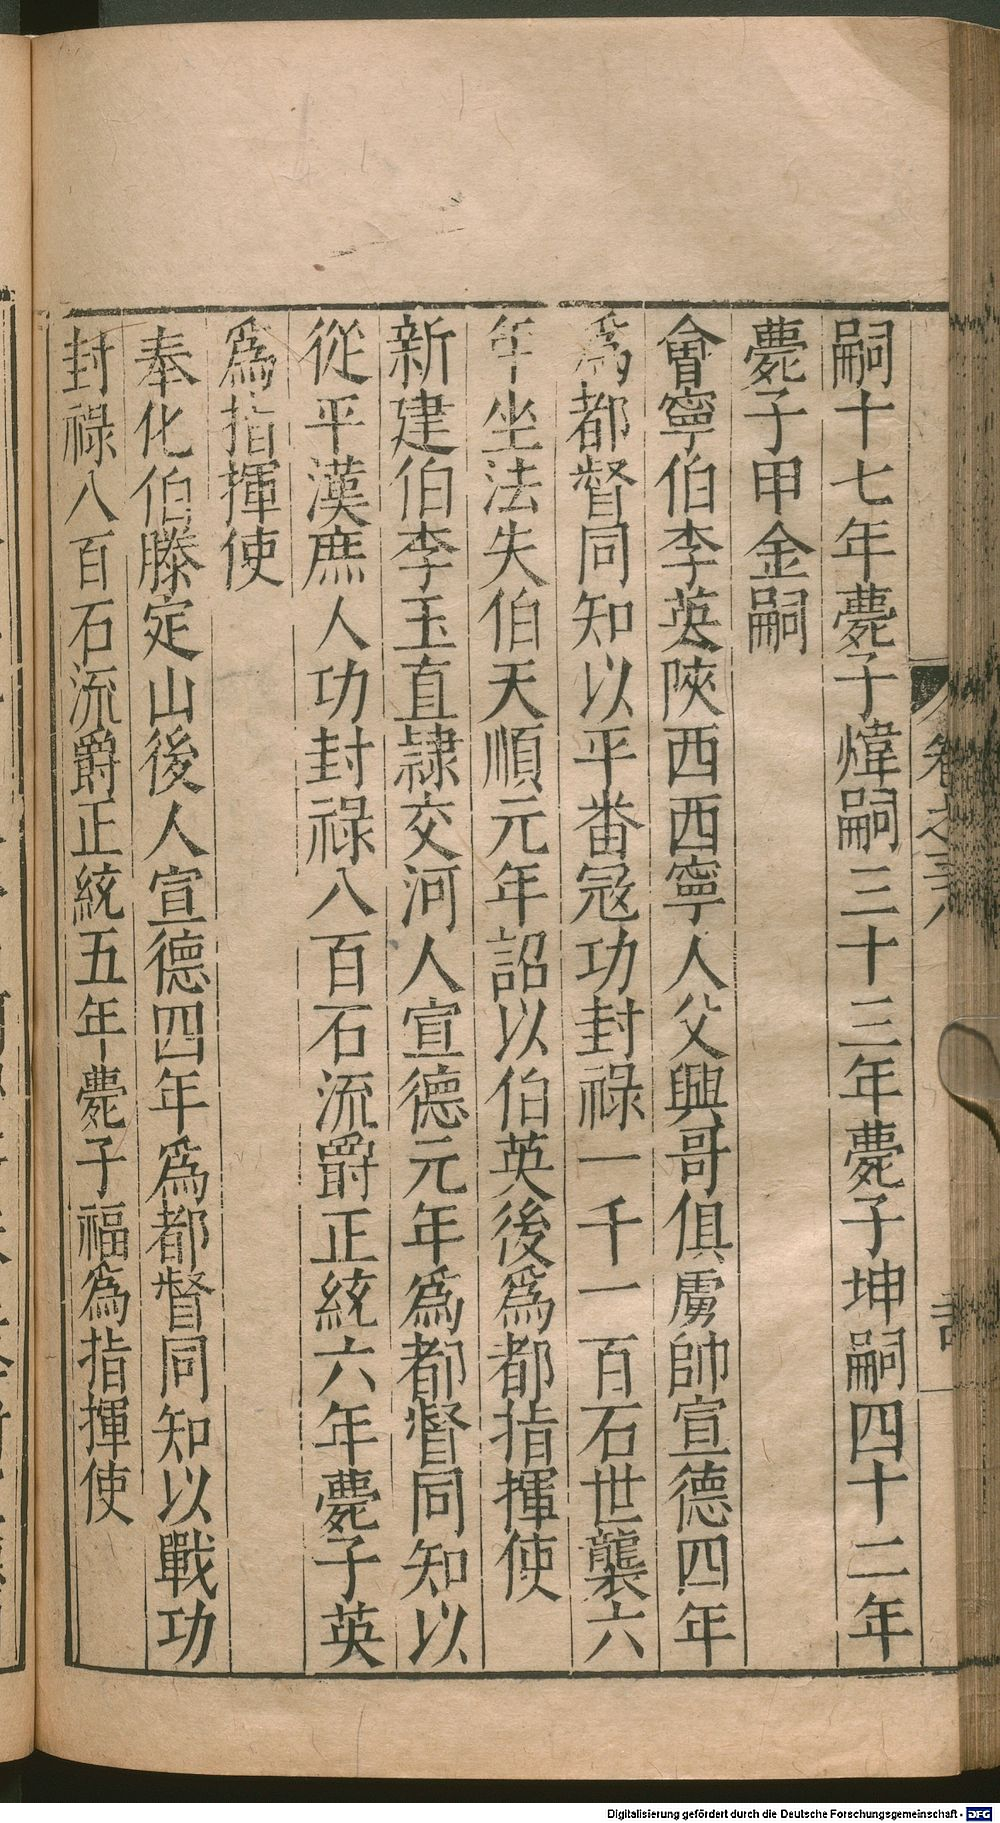 嗣十七年薨子煒嗣三十三年薨子坤嗣四十二年
薨子甲金嗣
會寧伯李英陝西西寧人父興哥俱虜帥宣德四年
爲都督同知以平畨冦功封祿一千一百石世襲六
年坐法失伯天順元年詔以伯英後爲都指揮使
新建伯李玉直隷交河人宣德元年爲都督同知以
從平漢庶人功封祿八百石流爵正統六年薨子英
爲指揮使
奉化伯滕定山後人宣德四年爲都督同知以戰功
封祿八百石流爵正統五年薨子福爲指揮使
Digitalisierung gefördert durch die Deutsche Forschungsgemeinschaft - DFG